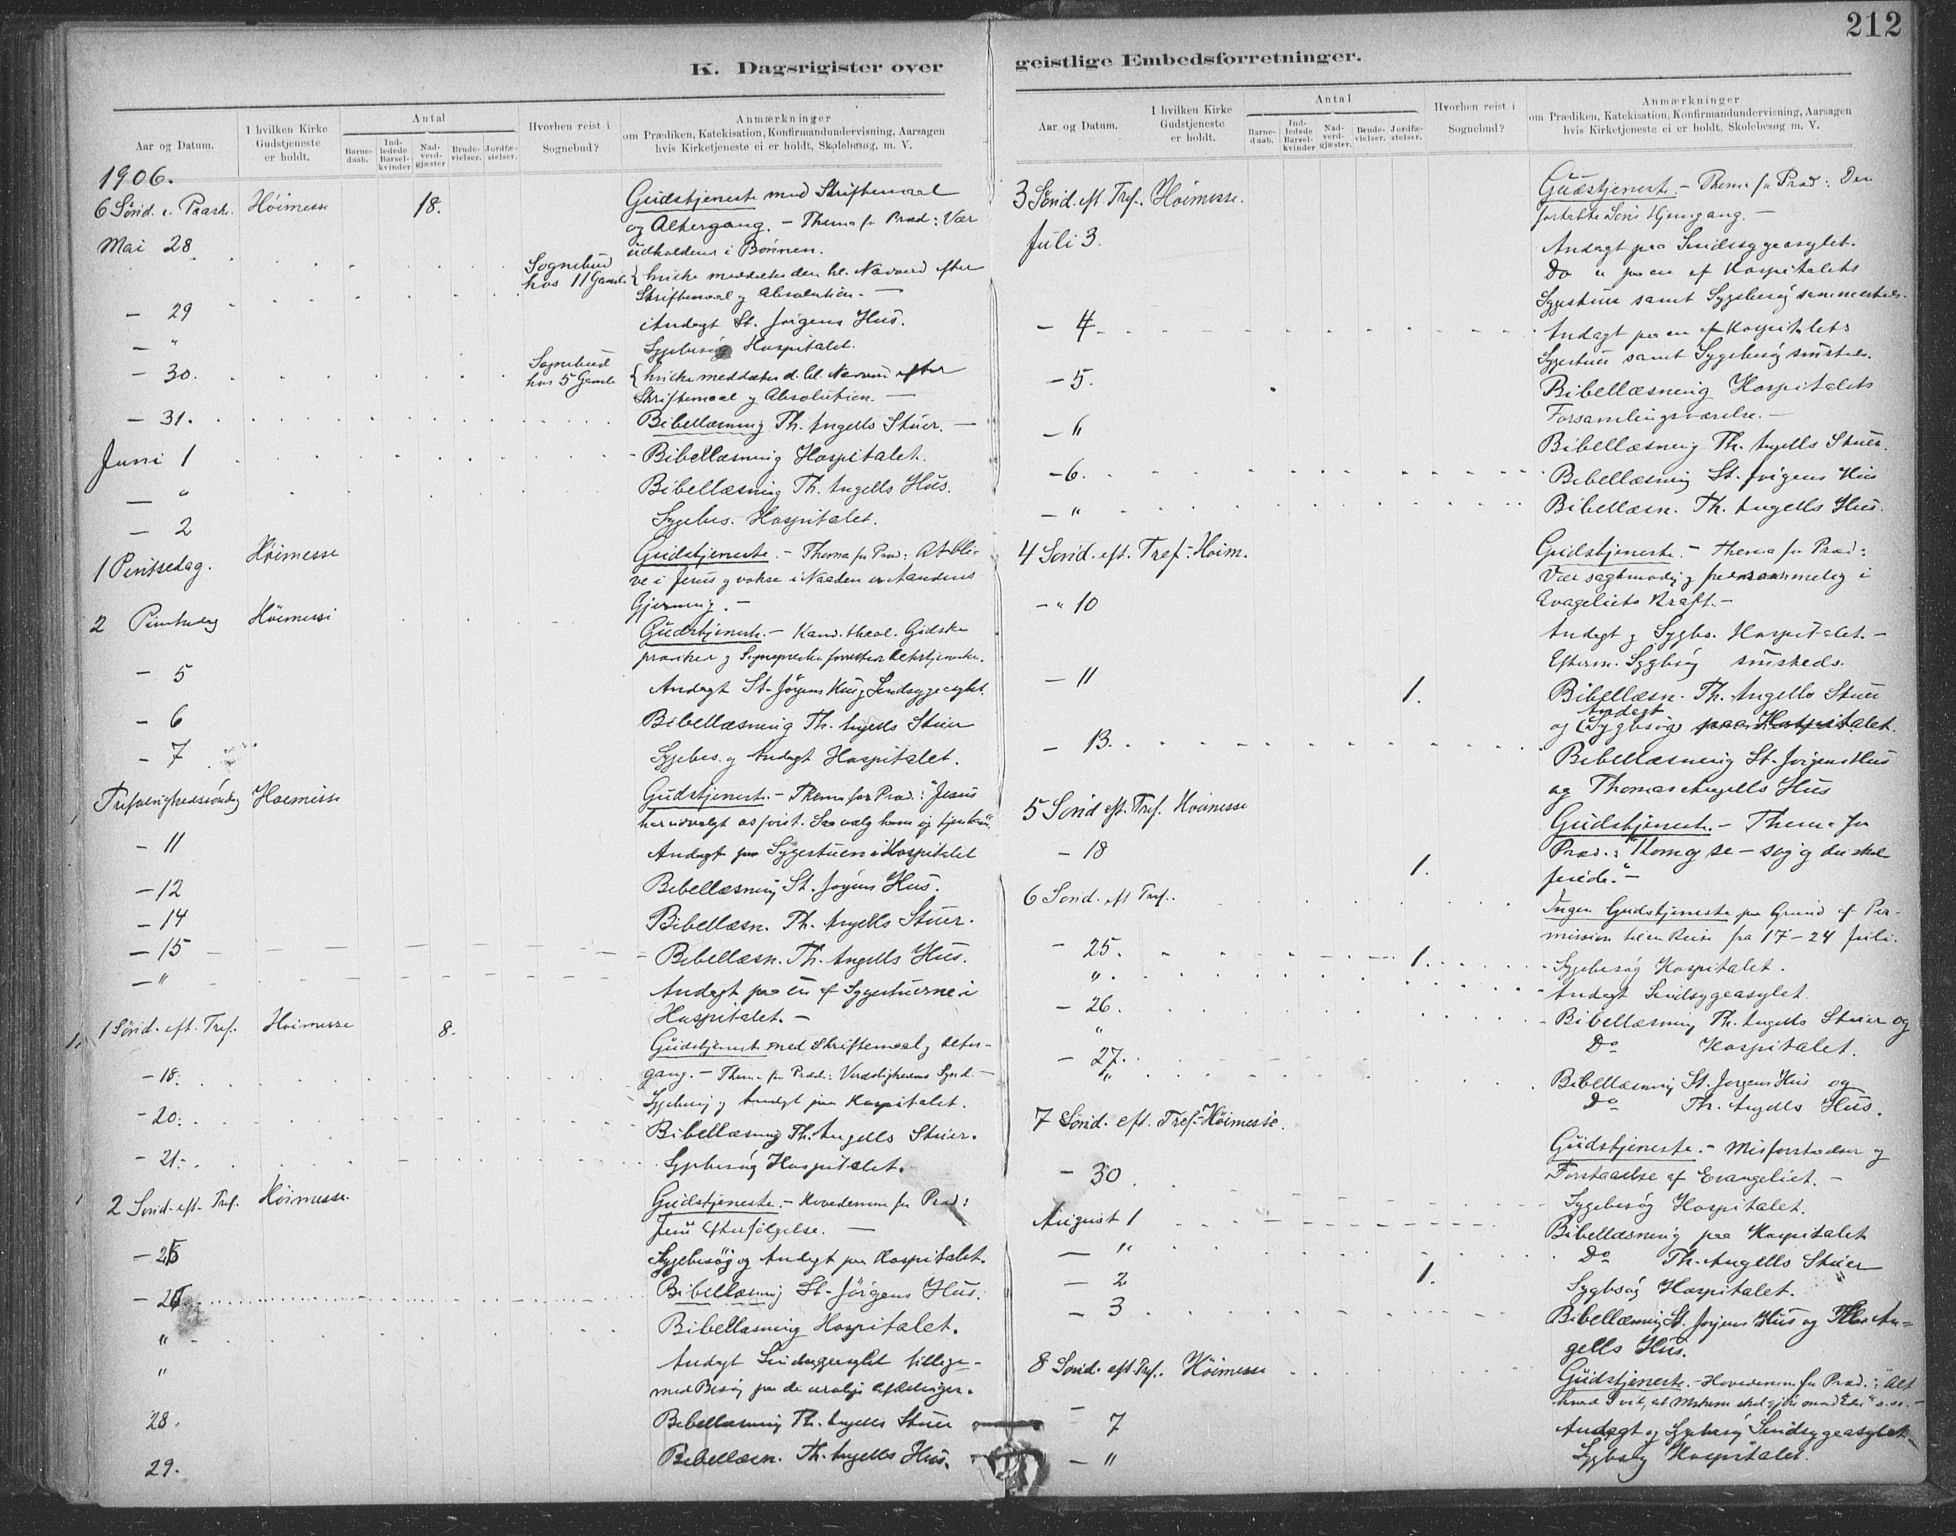 212
K. Dagsrigister over
Aar og Datum.
I hvilken Kirke Gudstjeneste er holdt.
Antal
Barne-daab.
Ind-ledede Barsel-kvinder
Nad-verd-gjæster
Brude-vielser.
Jordfæ-stelser.
Hvorhen reist i Sognebud?
Anmærkninger
om Prædiken, Katekisation, Konfirmandundervisning, Aarsagen
hvis Kirketjeneste ei er holdt, Skolebesøg, m. V.
1906.
6 Sönd. e. Paask. Höimesse 18. Gudstjeneste med Skriftemaal
og Altergang. - Thema for Præd: Vær
udholdene i Bönnen.
Mai 28 Sognebud hos 11 Gamle { hvilke meddeltes den hl. Nadverd efter
Skriftemaal og Absolution. -
- 29 Andagt St. Jørgens Hus.
- " Sygebesøg Hospitalet.
- 30. Sognebud hos 5 Gamle { hvilke meddeltes d. hl. Nadverd efter
Skriftemaal og Absolution. -
- 31. Bibellæsning Th. Angells Stuer. -
Juni 1 - Bibellæsning Hospitalet.
- " Bibellæsning Th. Angells Hus.
- 2 Sygebes. Hospitalet.
1 Pintsedag. Höimesse Gudstjeneste. - Thema for Præd: At bli-
ve i Jesus og vokse i Naaden er Aandens
Gjerning. -
2 Pintsedag Höimesse Gudstjeneste. - Kand. theol. Gidske
præker og Sognepresten forretter Alterstjenesten.
- 5 Andagt St. Jörgens Hus og Sindsygeasylet.
- 6 Bibellæsning Th. Angells Stuer
- 7 Sygebes. og Andagt Hospitalet.
Trefoldighedssöndag Höimesse Gudstjeneste. - Thema for Præd: "Jesus
har udvalgt os först. Saa vælg ham og tjen ham".
- 11 Andagt paa Sygestuen i Hospitalet
- 12 Bibellæsning St. Jörgens Hus.
- 14 Bibellæsn. Th. Angells Stuer.
- 15 - Bibellæsn. Th. Angells Hus.
- " Andagt paa en af Sygestuerne i
Hospitalet. -
1 Sönd. eft. Tref. Höimesse 8. Gudstjeneste med Skriftemaal og Alter-
gang. - Thema for Præd: Verdslighedens Synd. -
- 18. Sygebesøg og Andagt paa Hospitalet.
- 20. Bibellæsning Th. Angells Stuer.
- 21. Sygebesøg Hospitalet.
2 Sönd. eft. Tref. Höimesse. Gudstjeneste. - Hovedemne for Præd:
Jesu Efterfölgelse. -
- 25 Sygebesög og Andagt paa Hospitalet.
- 26 Bibellæsning St. Jörgens Hus.
" - Bibellæsning Hospitalet.
" Andagt Sindsygeasylet tillige-
med Besøg paa de urolige Afdelinger.
28. Bibellæsning Th. Angells Stuer
29. Bibellæsn. Th. Angells Hus.
geistlige Embedsforretninger.
Aar og Datum.
I hvilken Kirke Gudstjeneste er holdt.
Antal
Barne-daab.
Ind-ledede Barsel-kvinder
Nad-verd-gjæster.
Brude-vielser.
Jordfæ-stelser.
Hvorhen reist i Sognebud?
Anmærkninger
om Prædiken, Katekisation, Konfirmandundervisning, Aarsagen
hvis Kirketjeneste ei er holdt, Skolebesøg m. V.
3 Sönd. eft. Tref. Höimesse. Gudstjeneste. - Thema for Præd: Den
fortabte Söns Hjemgang. -
Juli 3. Andagt paa Sindssygeasylet.
Do " paa en af Hospitalets
Sygestuer samt Sygebesög sammesteds.
- 4 Andagt paa en af Hospitalets
Sygestuer samt Sygebesög smsteds.
- 5. Bibellæsning Hospitalets
Forsamlingsværelse. -
- " Bibellæsning Th. Angells Stuer.
- 6. Bibellæsning St. Jörgens Hus
- " Bibellæsn. Th. Angells Hus.
4 Sönd. eft. Tref. - Höim. Gudstjeneste. - Thema for Præd:
Vær sagtmodig og i
Evageliets Kraft. -
- " 10 Andagt og Sygbs. Hospitalet. -
Efterm. Sygbsög smsteds.
- 11 1. Bibellæsn. Th. Angells Stuer
og Andagt (Sygbsög) paa Hospitalet.
- 13. Bibellæsning St. Jörgens Hus
og Thomas Angells Hus
5 Sönd eft. Tref. Höimesse Gudstjeneste. - Thema for
Præd.: "Kom og se - og du skal
finde." -
- 18 1.
6 Sönd. eft Tref. Ingen Gudstjeneste paa Grund af Per-
mission til en Reise fra 17 - 24 Juli.
- 25. 1. Sygebesøg Hospitalet.
". Andagt Sindsygeasylet
- 26. - Bibellæsning Th. Angells Stuer og
" Do Hospitalet.
- 27. Bibellæsning St. Jörgens Hus og
" Do Th. Angells Hus.
7 Sönd. eft. Tref. - Höimesse. Gudstjeneste. - Misforstaaelser og
Forstaaelse af Evangeliet. -
- 30 Sygebesög Hospitalet.
August 1 Bibellæsning paa Hospitalet
- " Do Th. Angells Stuer
- 2 1. Sygbsög Hospitalet.
- 3 Bibellæsning St. Jörgens Hus og Th. An-
gells Hus.
8 Sönd. eft Tref. Höimesse Gudstjeneste. - Hovedemne for Præd.: "Alt
hvad I vil, at Mskene skal gjöre mod Eder" o.s.v. -
- 7 Andagt og Sygebesög Sindsygeasylet.
- " Sygbsög Hospitalet.